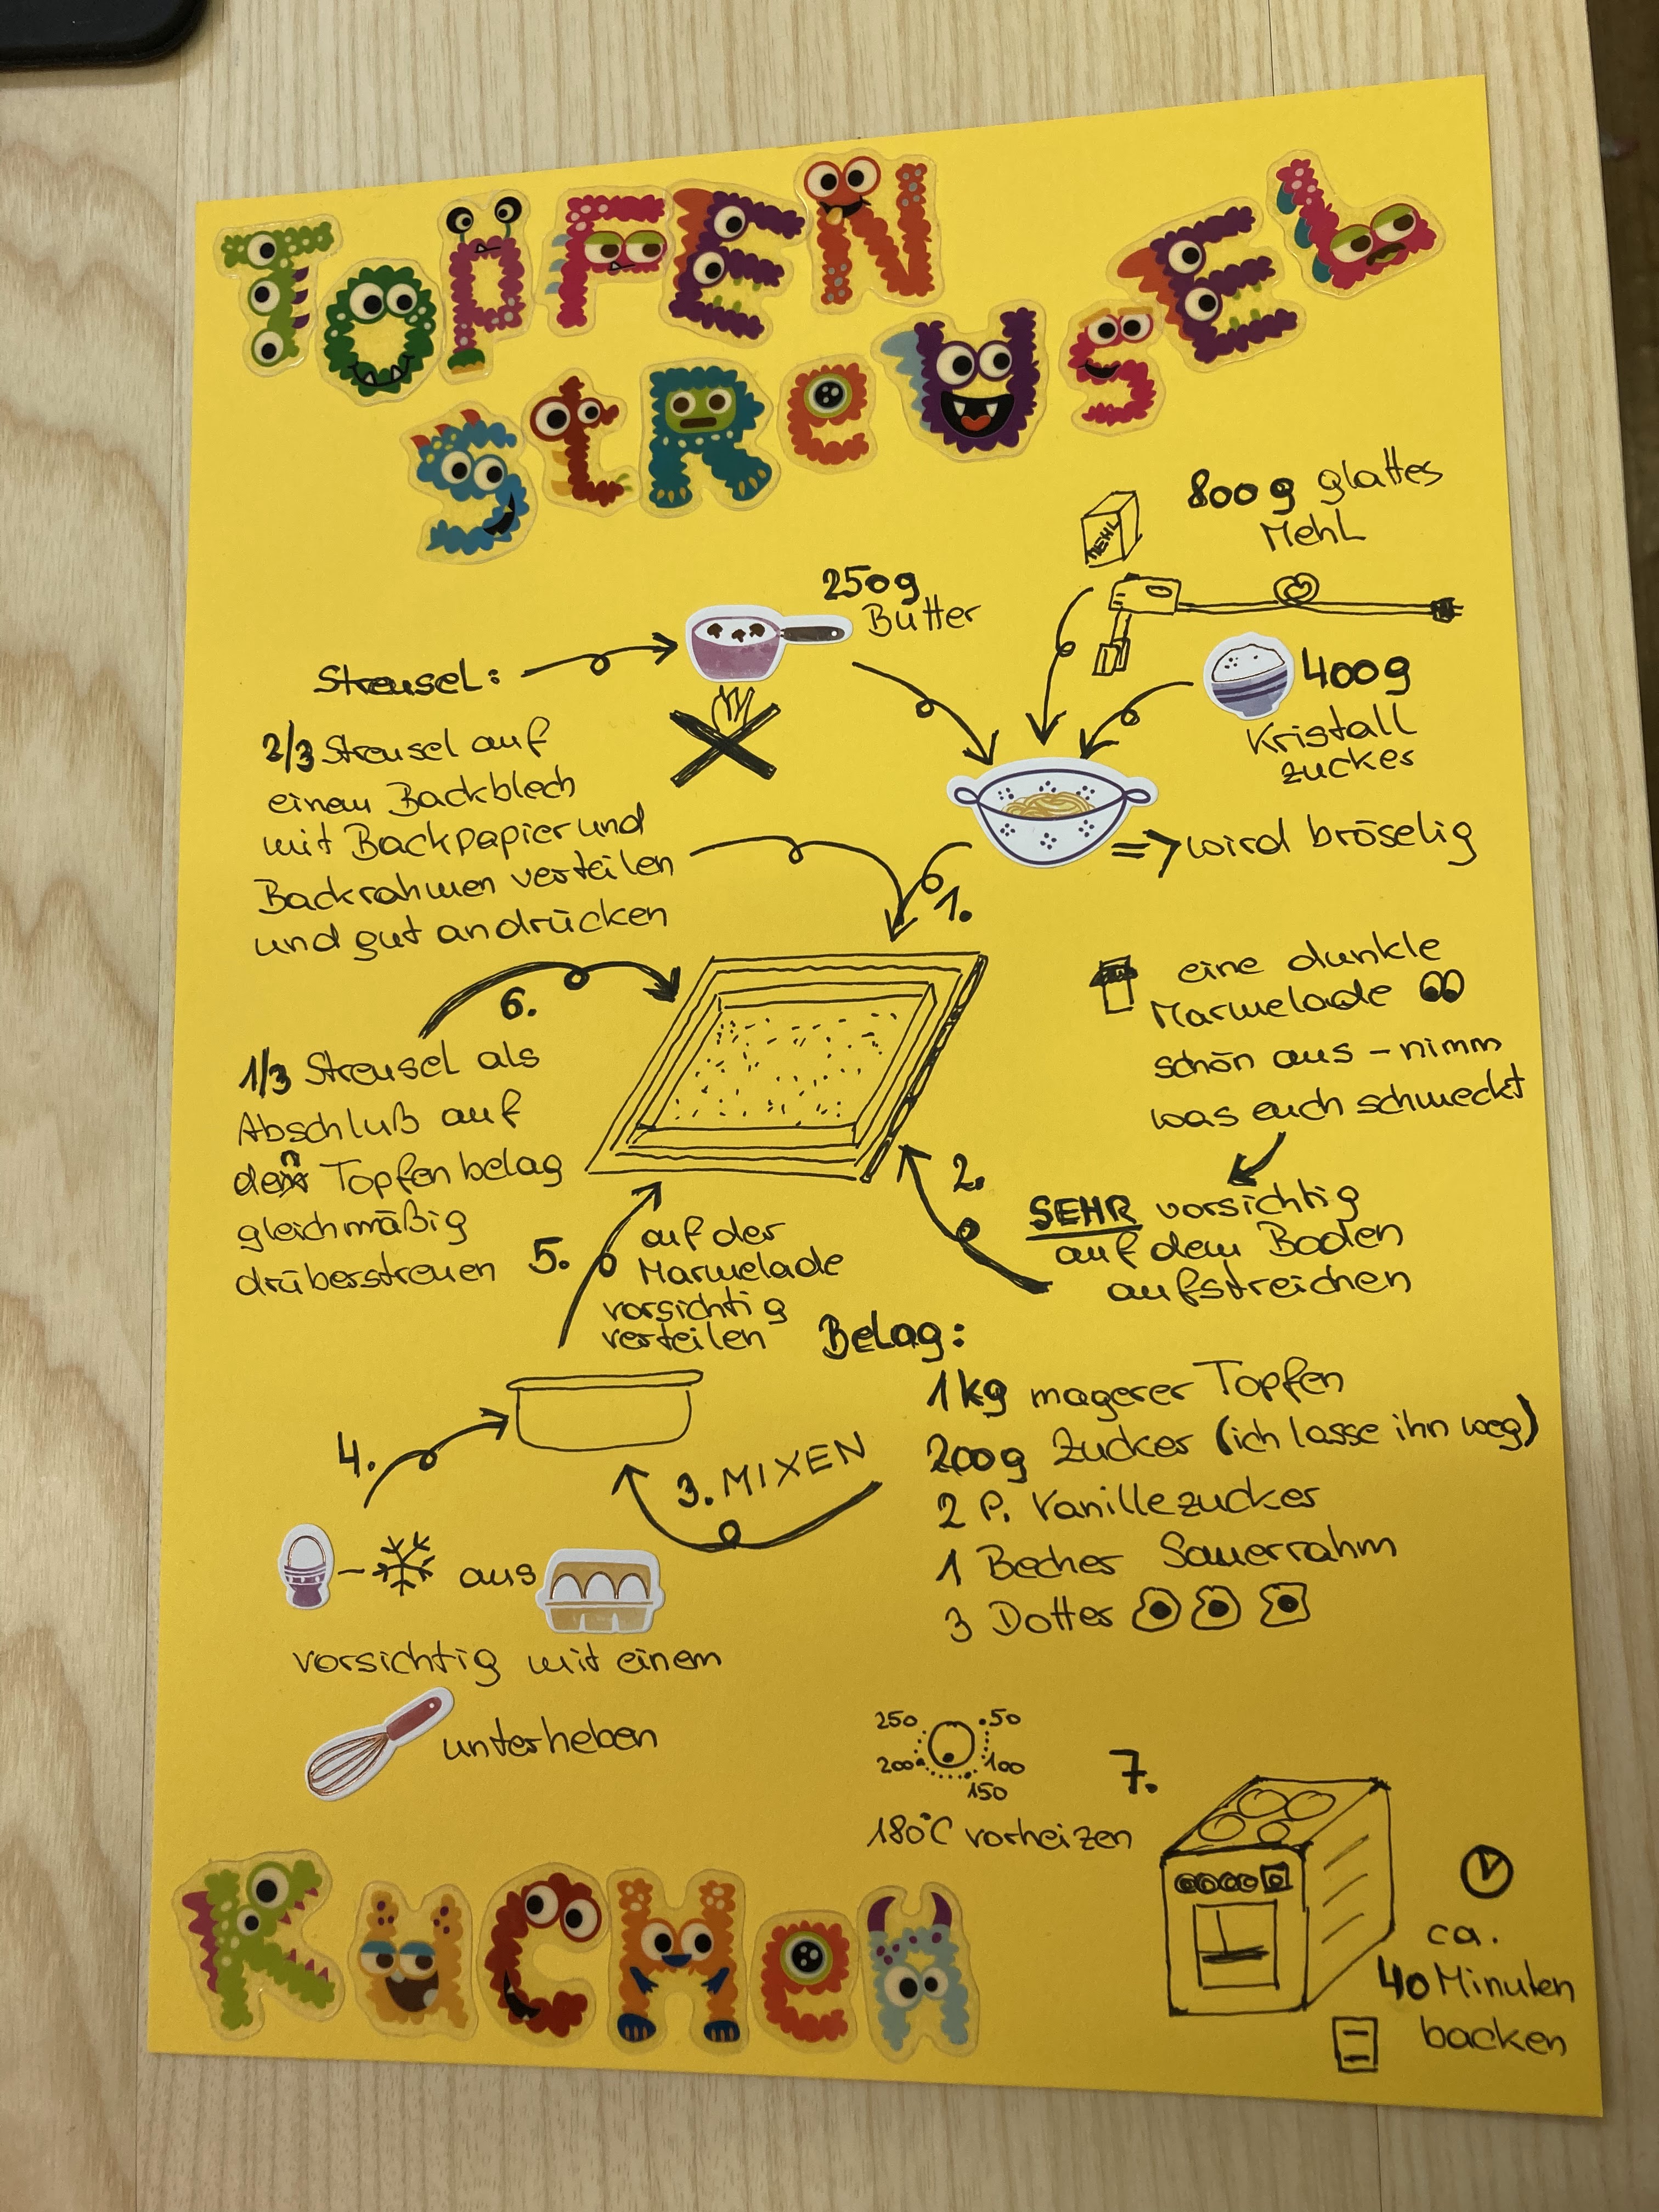 TOPFEN
StReUSEL
800g glattes
Mehl
MEHL
250g
Butter
Streusel:
400g
Kristall
zucker
2/3 Streusel auf
einem Backblech
mit Backpapier und
Backrahmen verteilen
und gut andrücken
=> wird bröselig
1.
eine dunkle
Marmelade
schön aus - nimm
was euch schmeckt
6.
1/3 Streusel als
Abschluß auf
den Topfenbelag
gleichmäßig
drüberstreuen
2.
SEHR vorsichtig
auf dem Boden
aufstreichen
5.
auf der
Marmelade
vorsichtig
verteilen
Belag:
1kg magerer Topfen
200g Zucker (ich lasse ihn weg)
2 P. Vanillezucker
1 Becher Sauerrahm
3 Dotter
3. MIXEN
4.
- aus
vorsichtig mit einem
unterheben
250 50
200 100
150
180°C vorheizen
7.
ca.
40 Minuten
backen
KuCHeN